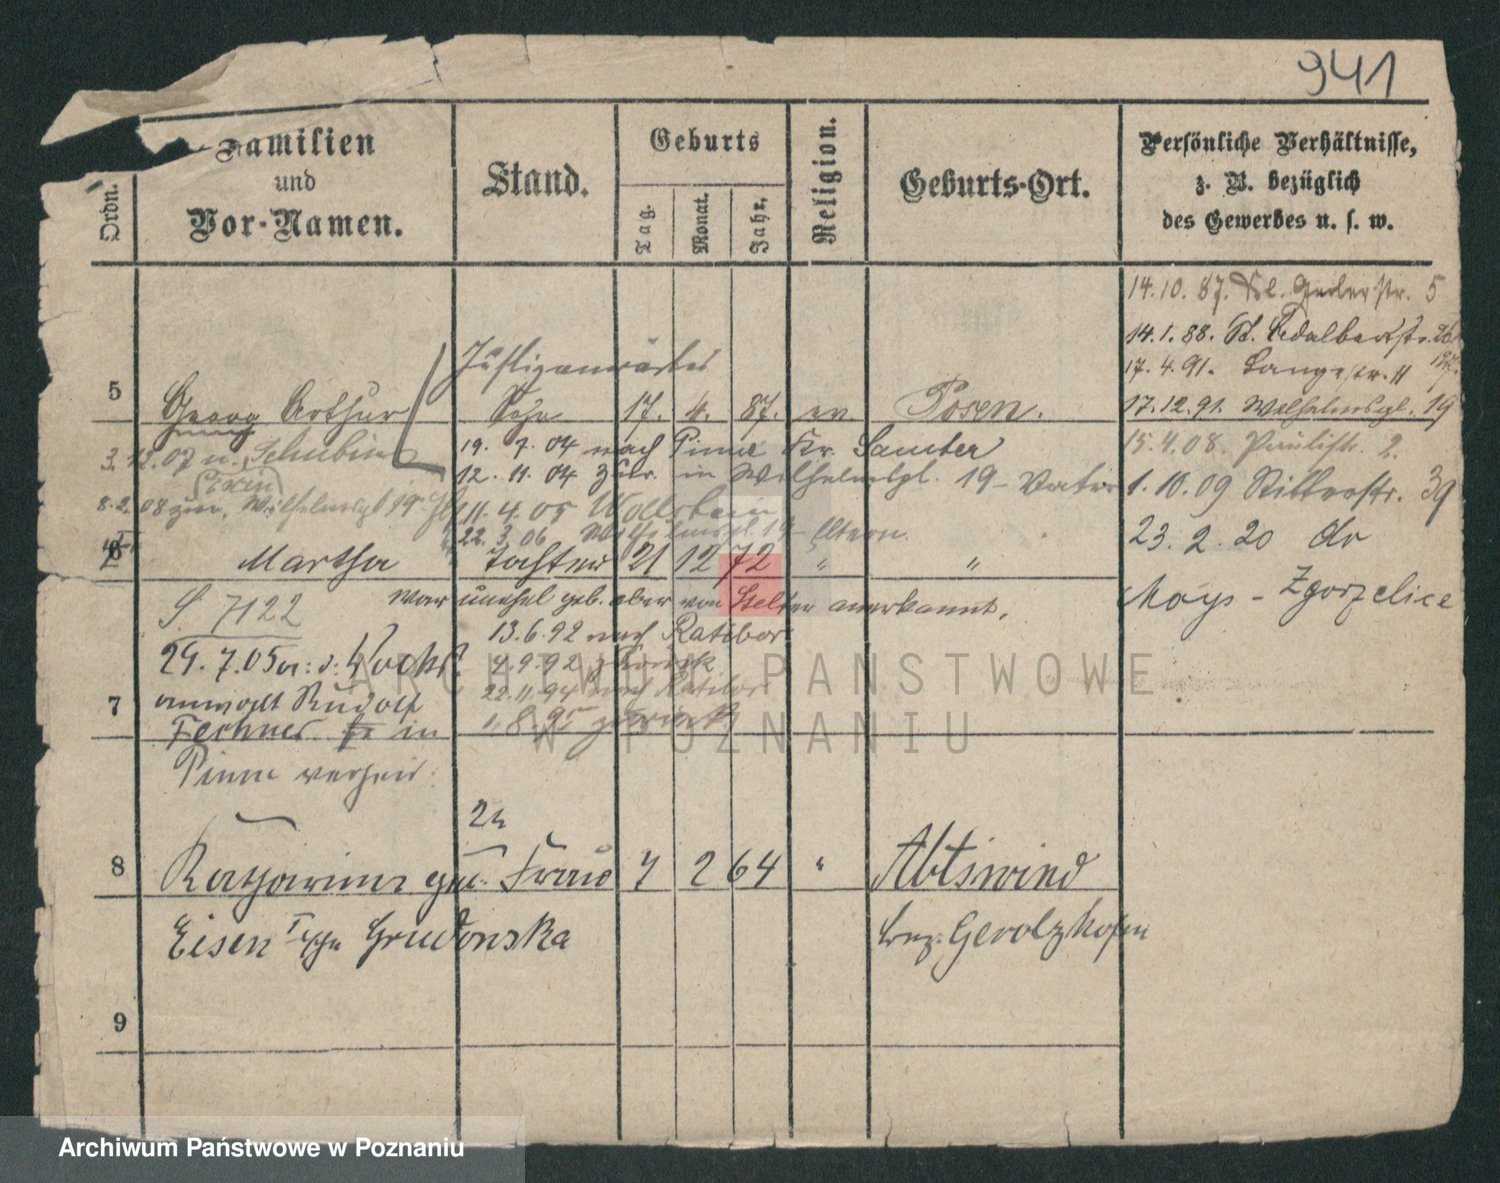 941
Ordn.
Familien
und
Vor-Namen.
Stand.
Geburts
Tag.
Monat.
Jahr.
Religion.
Geburts-Ort.
Persönliche Verhältnisse,
z. B. bezüglich
des Gewerbes u. s. w.
14.10.87. Kl. Gerberstr. 5
14.1.88. St. Adalbertstr.
17.4.91. Langestr. 11
17.12.91. Wilhelmspl. 19
15.4.08. Paulistr. 2.
1.10.09 Ritterstr. 39
23.2.20
Moys - Zgorzelice
Justizanwärter
5 Georg Arthur Sohn 17. 4. 87. ev. Posen.
19.7.04 nach Pinne Kr. Samter
12.11.04 zur. in Wilhelmspl. 19 - Vater
07 n. Schubin
(Exin)
8.2.08 zur. Wilhelmspl 19
11.4.05 Wollstein
22.3.06 Wilhelmspl. 19 - Eltern
6 Martha Tochter 21 12 72 " "
war unehel geb. aber von Stelter anerkannt.
S 7122
13.6.92 nach Ratibor
29.7.05 a: d. Rechts
4.9.92 zurück
22.11.94 nach Ratibor
7 anwalt Rudolf
8.95 zurück
Fechner in
Pinne verheir.
2te
8 Katharina geb. Frau 7 2 64 " Abtswind
Eisen Grudonska
Bez. Gerolzhofen
9
ARCHIWUM PAŃSTWOWE
W POZNANIU
Archiwum Państwowe w Poznaniu